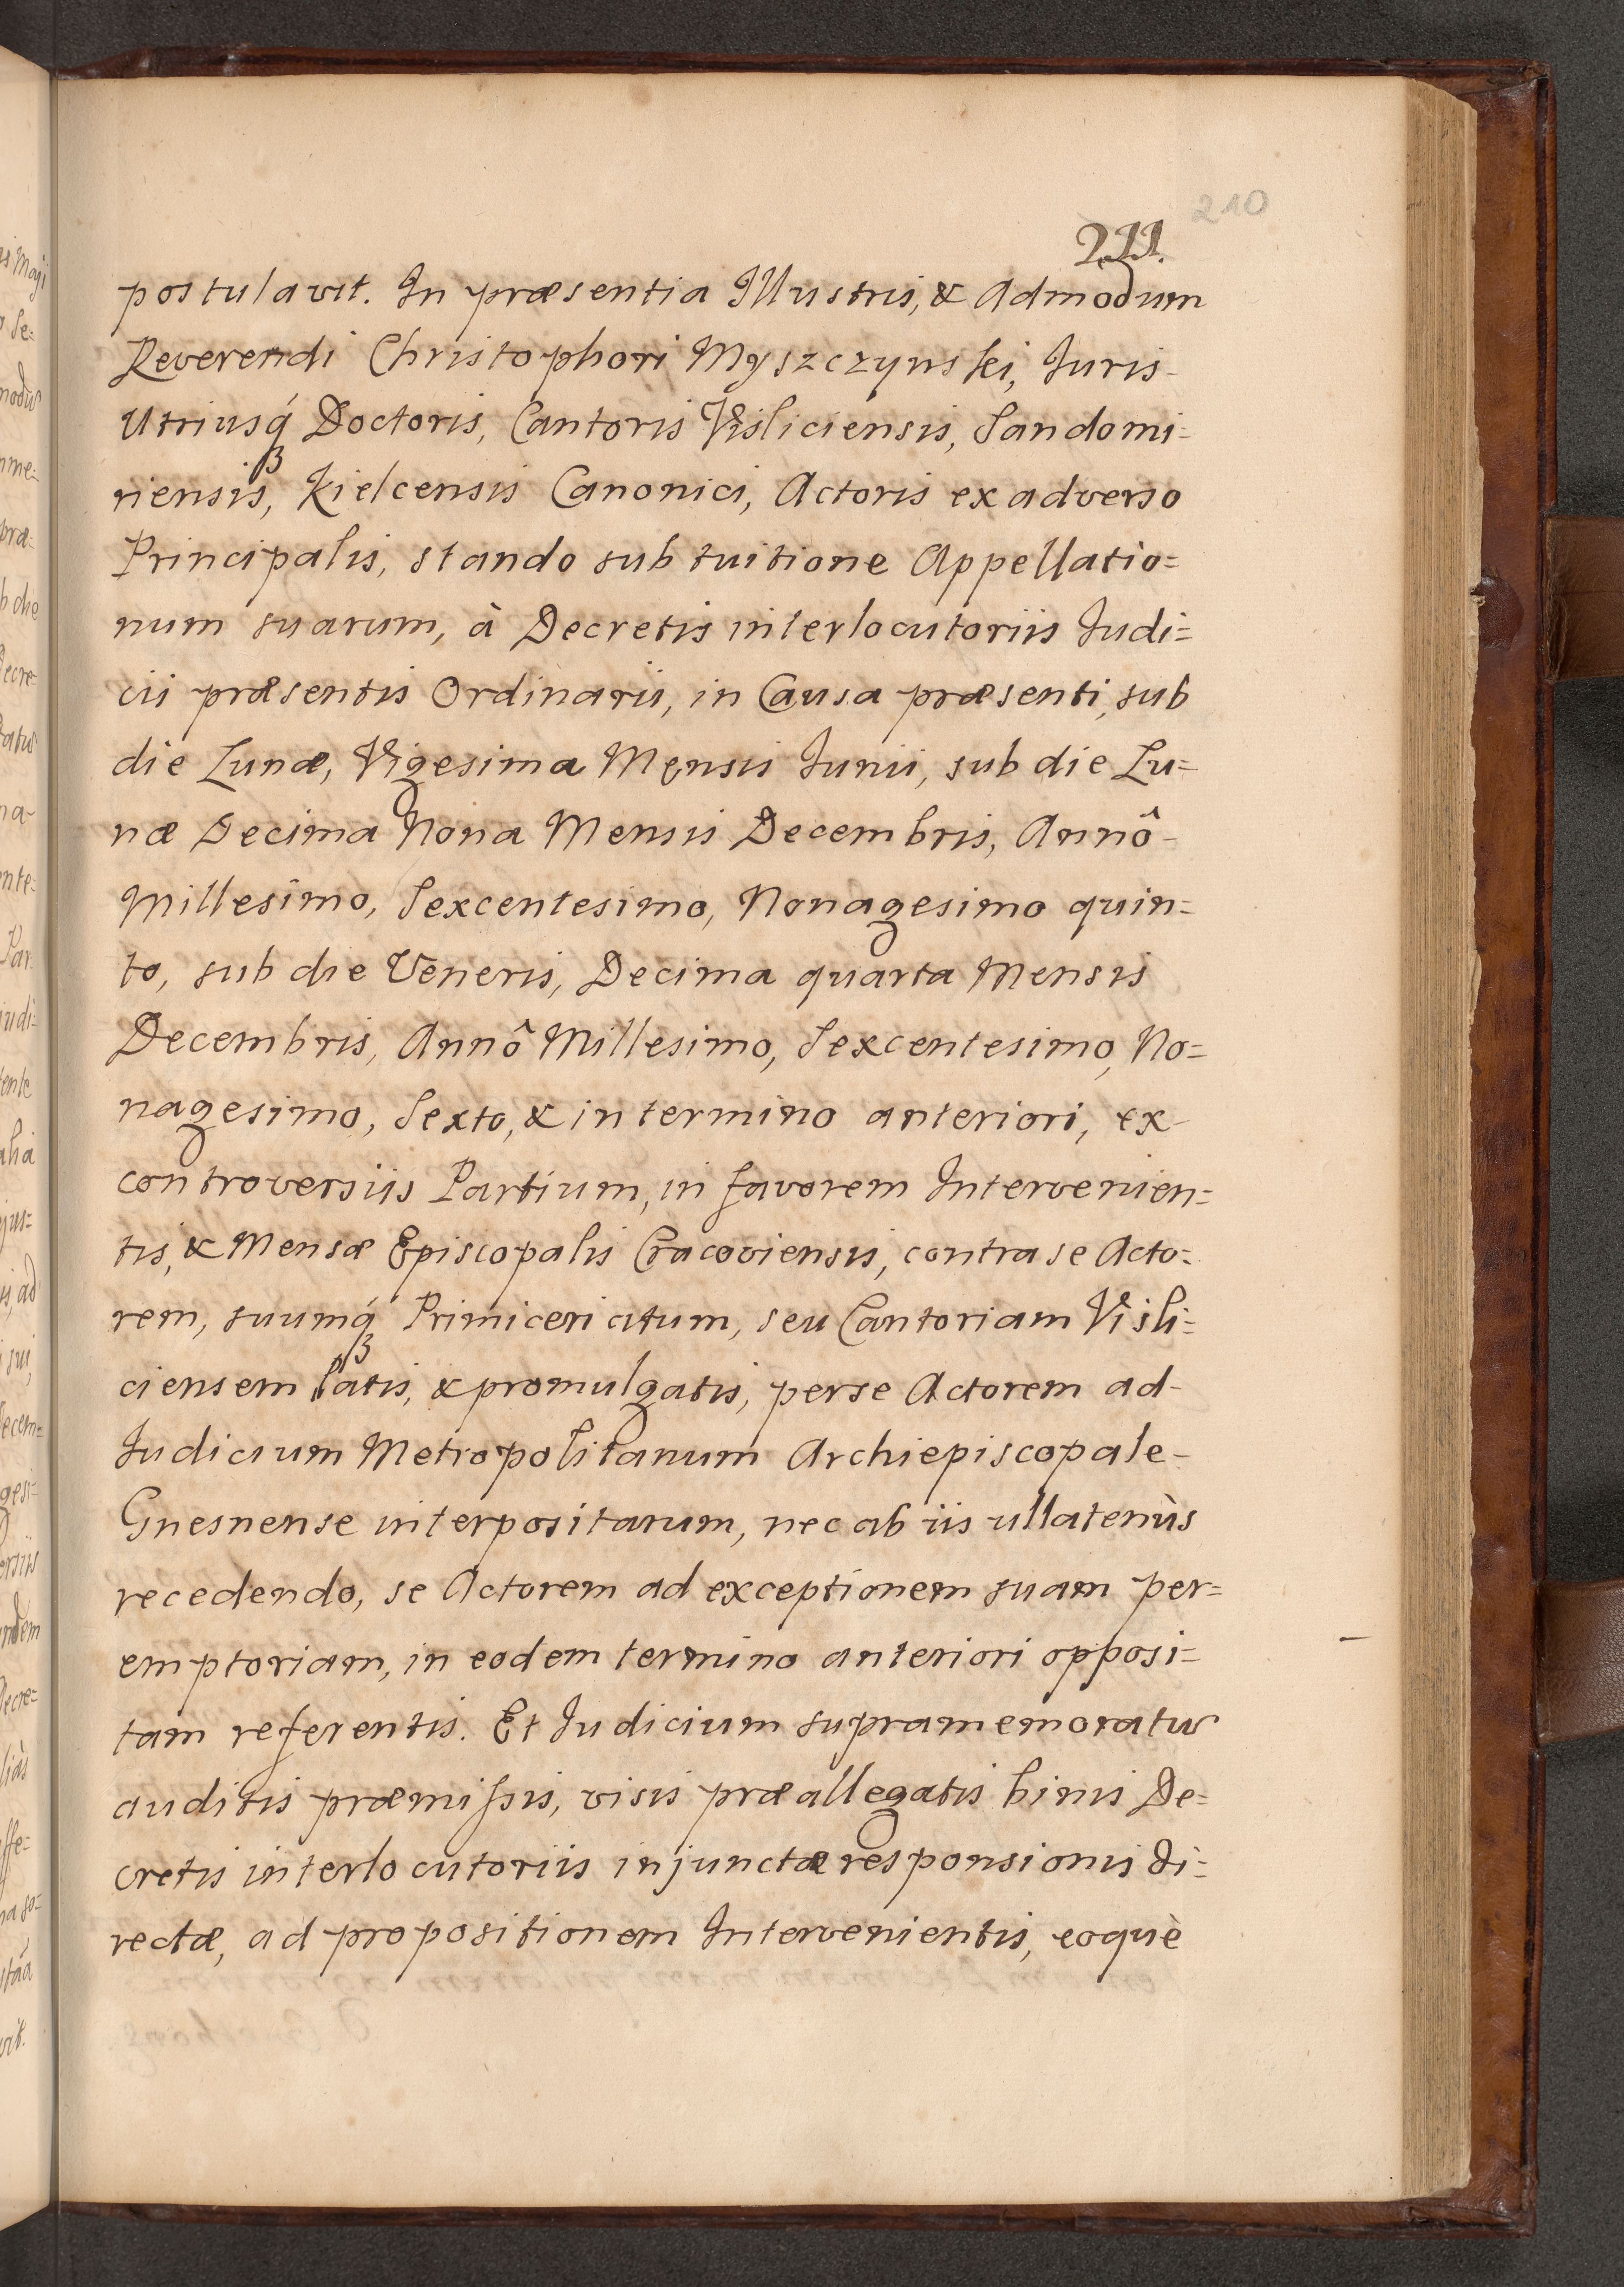 210
211.
postulavit. In præsentia Illustris, & Admodum
Reverendi Christophori Myszczynski, Juris-
Utriusq́ Doctoris, Cantoris Visliciensis, Sandomi=
riensis, Kielcensis Canonici, Actoris ex adverso
Principalis, stando sub tuitione Appellatio=
num suarum, à Decretis interlocutoriis Judi=
cii præsentis Ordinarii, in Causa præsenti, sub
die Lunæ, Vigesima Mensis Junii, sub die Lu=
næ Decima Nona Mensis Decembris, Annô-
Millesimo, Sexcentesimo, Nonagesimo quin=
to, sub die Veneris, Decima quarta Mensis
Decembris, Annô Millesimo, Sexcentesimo, No=
nagesimo, Sexto, & in termino anteriori, ex-
controversiis Partium, in favorem Intervenien=
tis, & Mensæ Episcopalis Cracoviensis, contra se Acto=
rem, suumq́ Primiceriatum, seu Cantoriam Visli=
ciensem latis, & promulgatis, per se Actorem ad-
Judicium Metropolitanum Archiepiscopale-
Gnesnense interpositarum, nec ab iis ullatenùs
recedendo, se Actorem ad exceptionem suam per=
emptoriam, in eodem termino anteriori opposi=
tam referentis. Et Judicium supramemoratu
auditis præmissis, visis præallegatis binis De=
cretis interlocutoriis injunctæ responsionis di=
rectæ, ad propositionem Intervenientis, eoquè